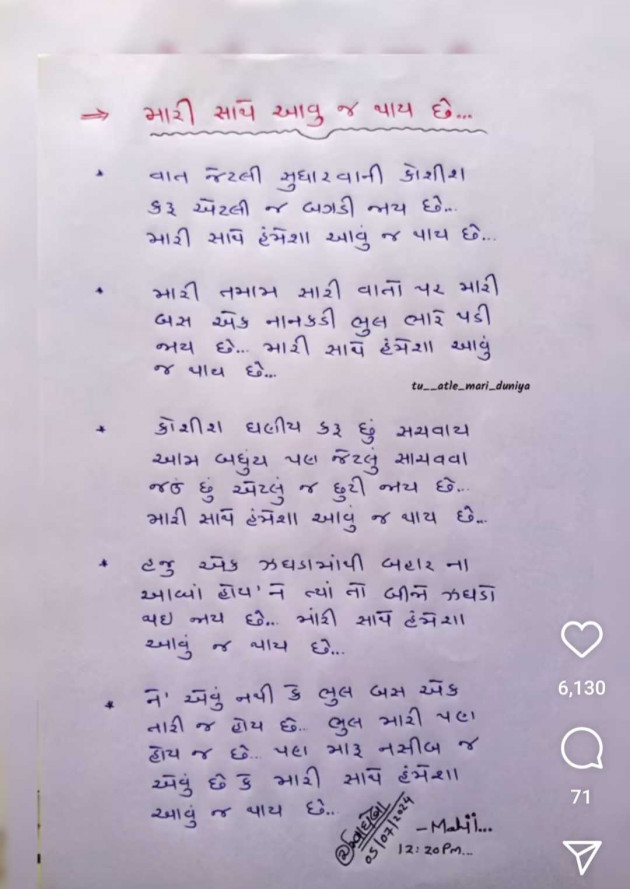 ⇒ મારી સાથે આવુ જ થાય છે...
* વાત જેટલી સુધારવાની કોશીશ
કરૂ એટલી જ બગડી જાય છે...
મારી સાથે હંમેશા આવું જ થાય છે...
* મારી તમામ સારી વાતો પર મારી
બસ એક નાનકડી ભુલ ભારે પડી
જાય છે... મારી સાથે હંમેશા આવું
જ થાય છે...
tu__atle_mari_duniya
* કોશીશ ઘણીય કરૂ છું સચવાય
આમ બધુંય પણ જેટલું સાચવવા
જઉં છું એટલું જ છુટી જાય છે...
મારી સાથે હંમેશા આવું જ થાય છે...
* હજુ એક ઝઘડામાંથી બહાર ના
આવ્યાં હોય' ને ત્યાં તો બીજો ઝઘડો
થઇ જાય છે... મારી સાથે હંમેશા
આવું જ થાય છે...
* ને' એવું નથી કે ભુલ બસ એક
તારી જ હોય છે.. ભુલ મારી પણ
હોય જ છે... પણ મારૂ નસીબ જ
એવું છે કે મારી સાથે હંમેશા
આવું જ થાય છે...
05/07/2024
- Mahii...
12:20 Pm...
6,130
71